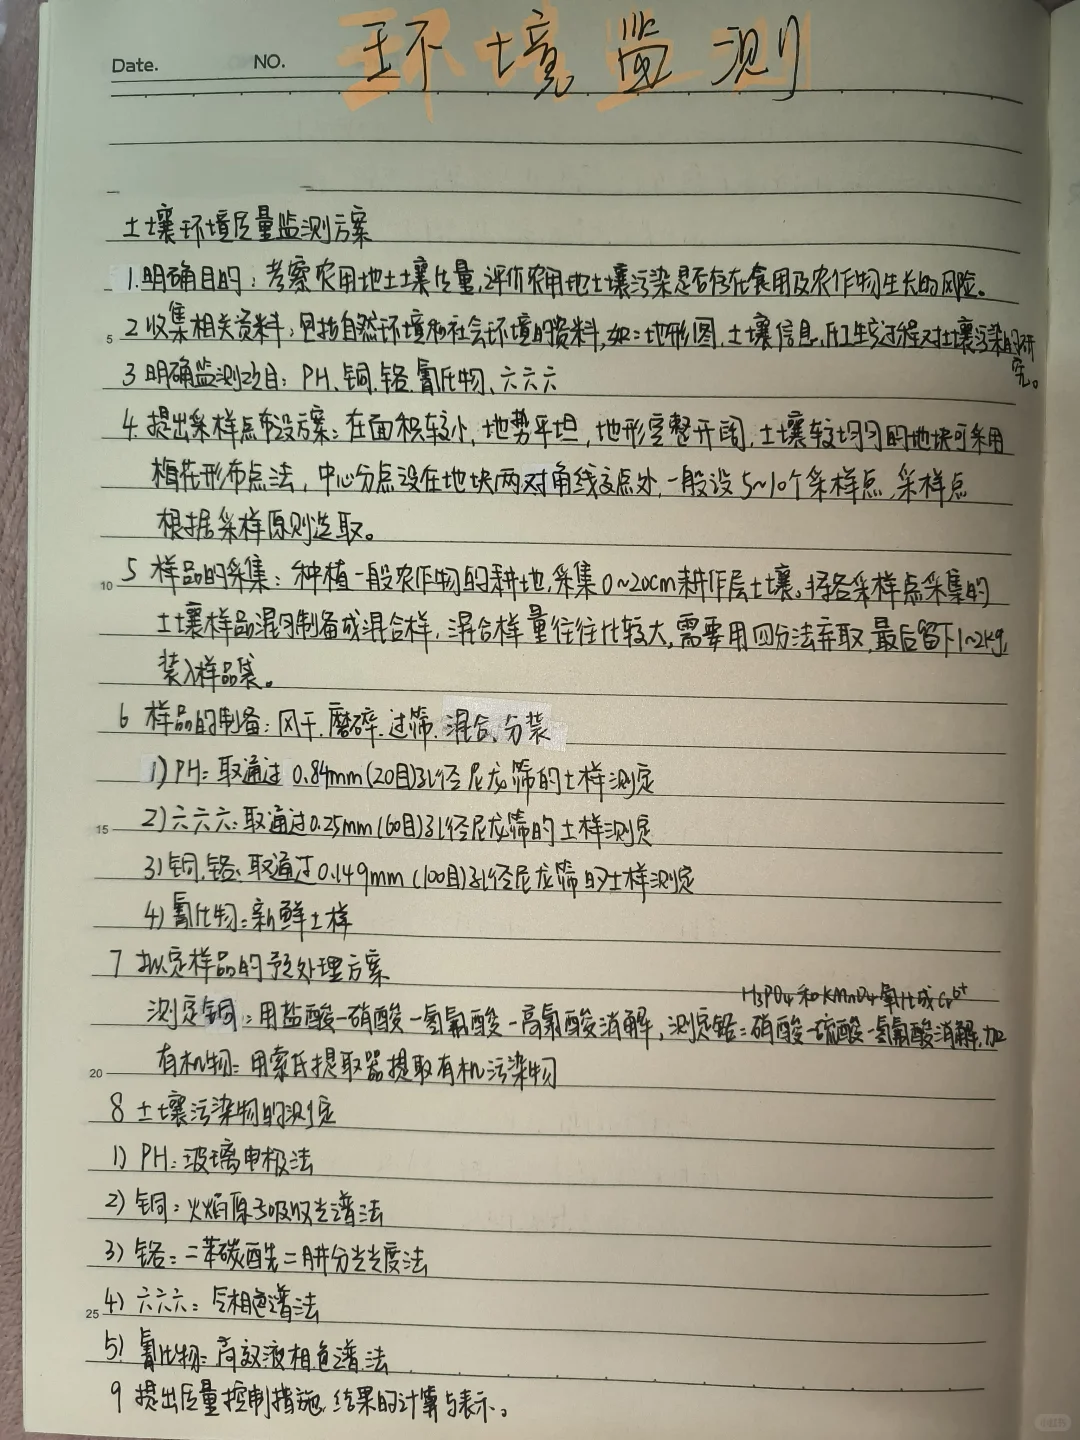 环境监测
Date. NO.
土壤环境质量监测方案
1.明确目的:考察农用地土壤质量,评价农用地土壤污染是否存在食用及农作物生长的风险。
5 2 收集相关资料:包括自然环境和社会环境的资料,如:地形图,土壤信息,化工生产过程对土壤污染的研究。
3 明确监测项目:PH、铜、铬、氰化物、六六六
4. 提出采样点布设方案:在面积较小,地势平坦,地形完整开阔,土壤较均匀的地块可采用
梅花形布点法,中心分点设在地块两对角线交点处,一般设5~10个采样点,采样点
根据采样原则选取。
10 5 样品的采集:种植一般农作物的耕地,采集0~20cm耕作层土壤。将各采样点采集的
土壤样品混匀制备成混合样,混合样量往往比较大,需要用四分法弃取,最后留下1~2kg,
装入样品袋。
6 样品的制备:风干、磨碎、过筛、混合、分装
1) PH:取通过0.84mm(20目)孔径尼龙筛的土样测定
15 2) 六六六:取通过0.25mm(60目)孔径尼龙筛的土样测定
3) 铜、铬:取通过0.149mm(100目)孔径尼龙筛的土样测定
4) 氰化物:新鲜土样
7 拟定样品的预处理方案
H₃PO₄和KMnO₄氧化成Cr⁶⁺
测定铜:用盐酸-硝酸-氢氟酸-高氯酸消解,测定铬:硝酸-硫酸-氢氟酸消解,加
20 有机物:用索氏提取器提取有机污染物
8 土壤污染物的测定
1) PH:玻璃电极法
2) 铜:火焰原子吸收光谱法
3) 铬:二苯碳酰二肼分光光度法
25 4) 六六六:气相色谱法
5) 氰化物:高效液相色谱法
9 提出质量控制措施,结果的计算与表示。
小红书